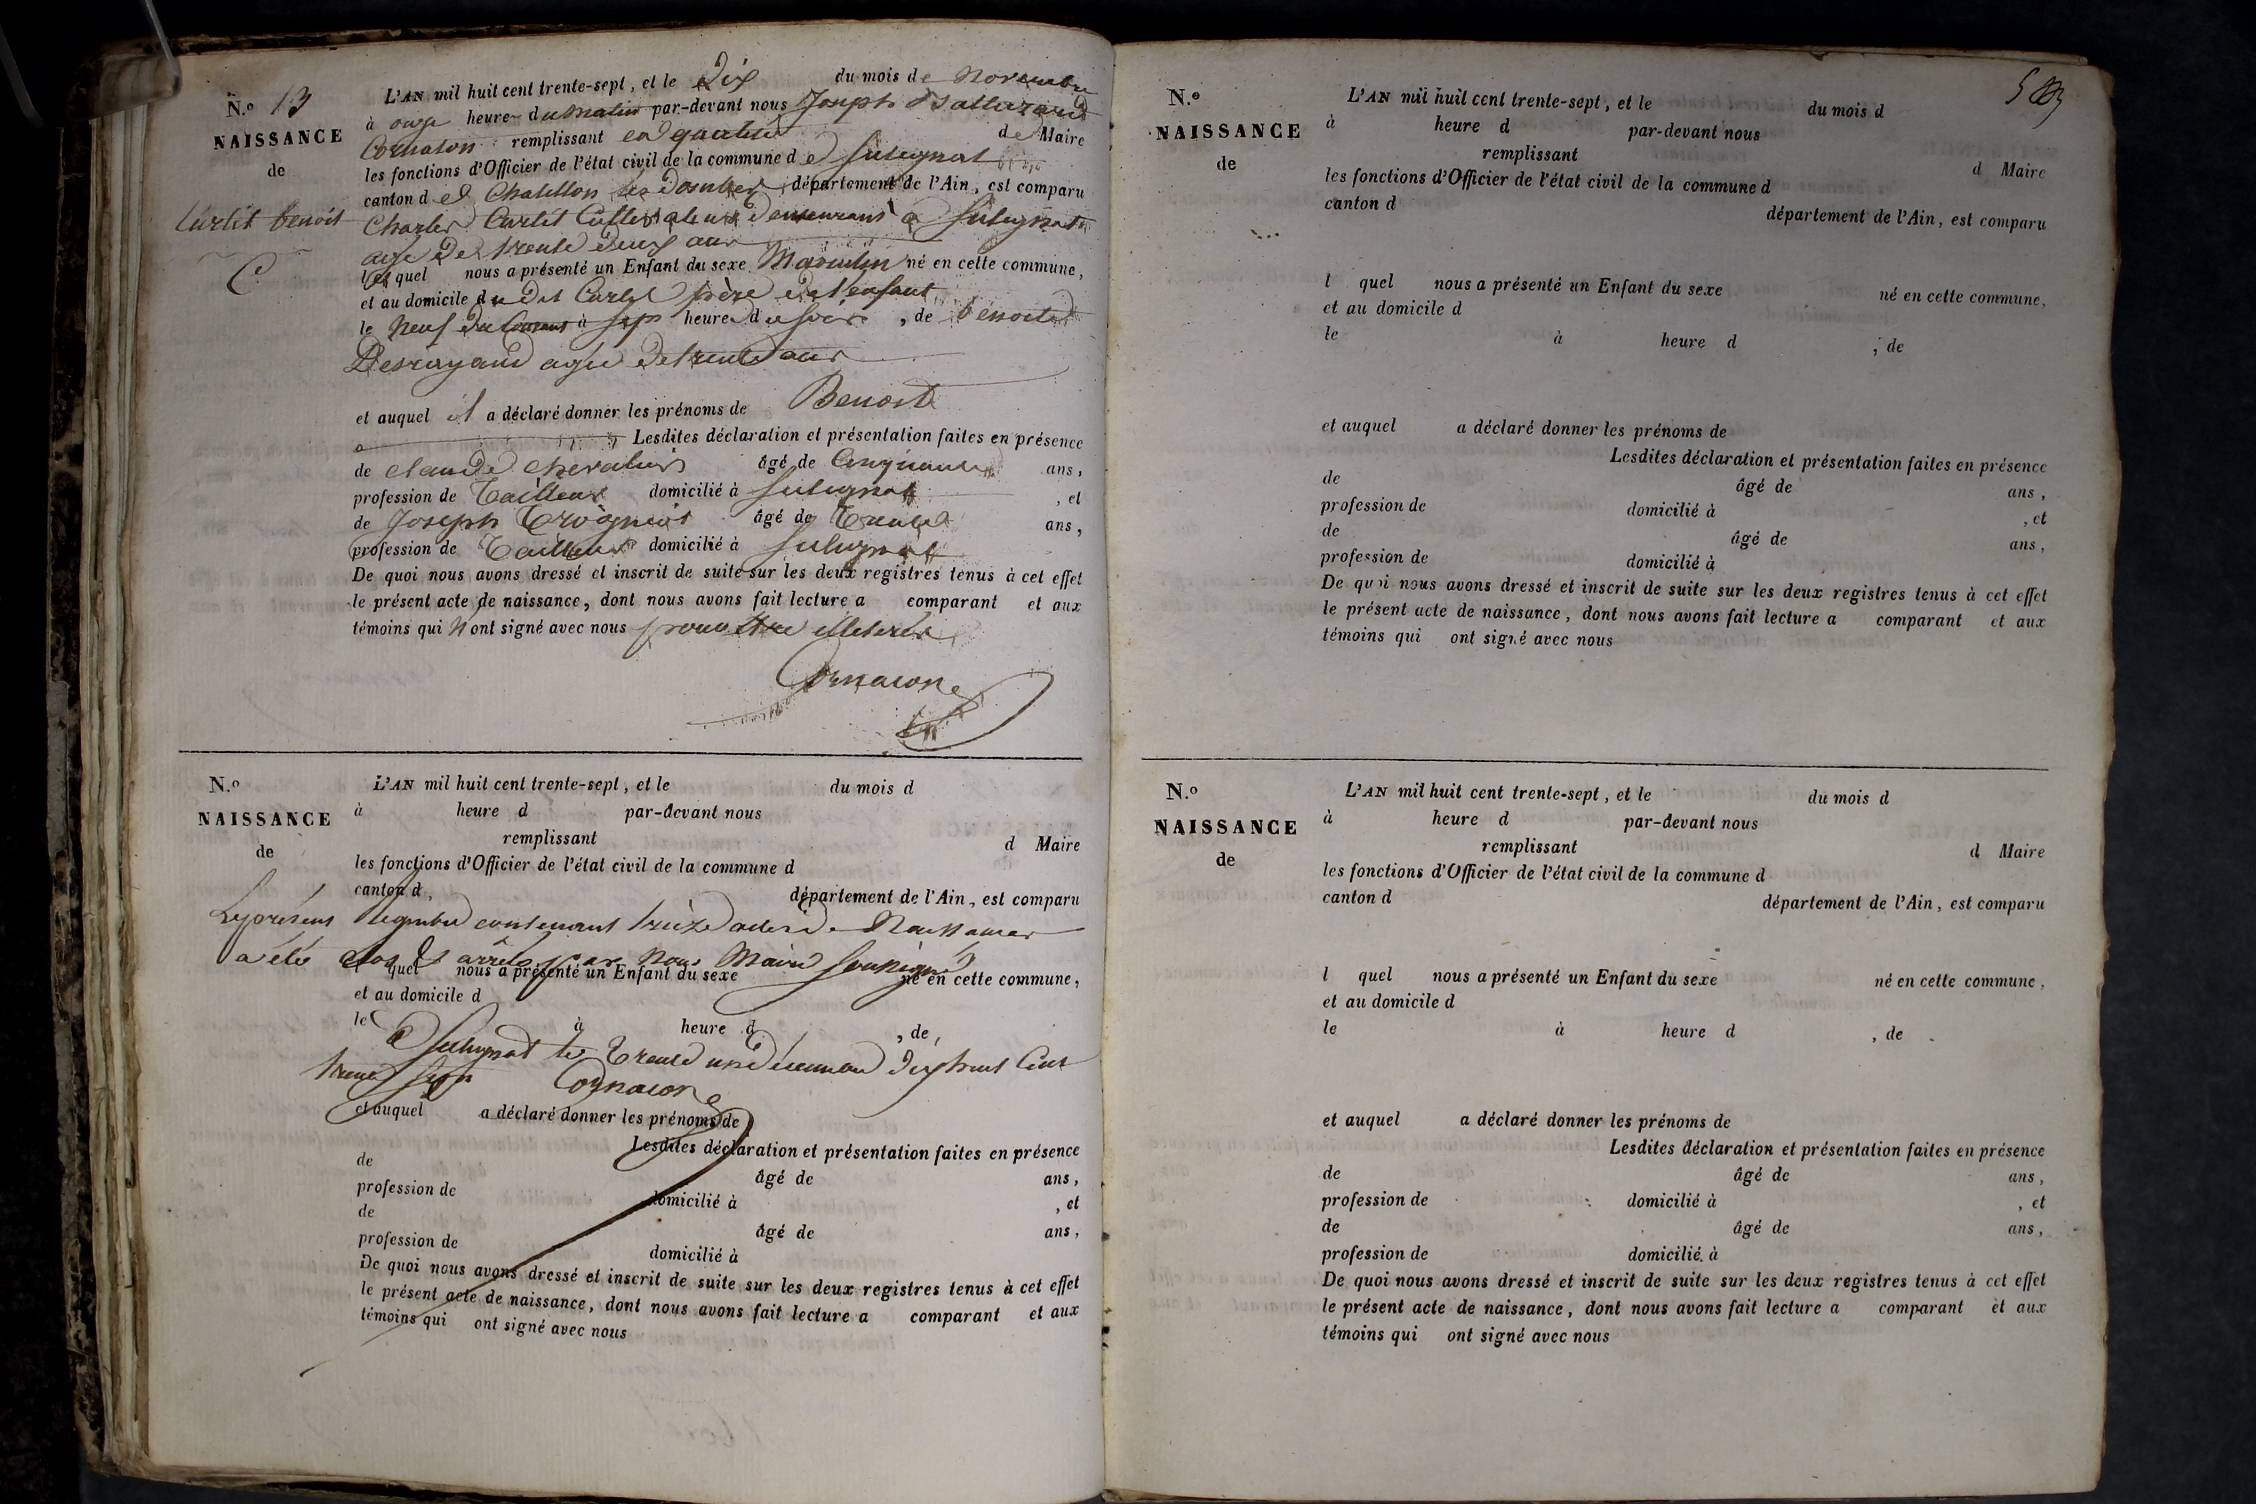 N.º 13
NAISSANCE
de
Curlit Benoit
L'AN mil huit cent trente-sept, et le Dix du mois de Novembre
à onze heure du Matin par-devant nous Joseph
Cornaton remplissant en qualité de Maire
les fonctions d'Officier de l'état civil de la commune de Sulignat
canton de Chatillon les Dombes, département de l'Ain, est comparu
Charles Curlit Cultivateur demeurant à Sulignat
agé De trente deux ans
lequel nous a présenté un Enfant du sexe Masculin né en cette commune,
et au domicile du Dit Curlit père de l'enfant
le Neuf du Courant à sept heure du soir, de benoite
agée De trente ans
et auquel il a déclaré donner les prénoms de Benoit
Lesdites déclaration et présentation faites en présence
de claude chevalier âgé de Cinquante ans,
profession de Tailleur domicilié à Sulignat, et
de Joseph âgé de Trente ans,
profession de Tailleur domicilié à Sulignat
De quoi nous avons dressé et inscrit de suite sur les deux registres tenus à cet effet
le présent acte de naissance, dont nous avons fait lecture a comparant et aux
témoins qui n'ont signé avec nous pour être illeterés
Cornaton
N.º
NAISSANCE
de
L'AN mil huit cent trente-sept, et le du mois d
à heure d par-devant nous
remplissant d Maire
les fonctions d'Officier de l'état civil de la commune d
canton d département de l'Ain, est comparu
Le présent registre contenant treize actes de Naissances
a été clos et arrêté par Nous Maire soussigné
l quel nous a présenté un Enfant du sexe né en cette commune,
et au domicile d
le à heure d , de
à Sulignat le Trente un décembre dix huit Cent
trente sept Cornaton
et auquel a déclaré donner les prénoms de
Lesdites déclaration et présentation faites en présence
de âgé de ans,
profession de domicilié à , et
de âgé de ans,
profession de domicilié à
De quoi nous avons dressé et inscrit de suite sur les deux registres tenus à cet effet
le présent acte de naissance, dont nous avons fait lecture a comparant et aux
témoins qui ont signé avec nous
N.º
NAISSANCE
de
L'AN mil huit cent trente-sept, et le du mois d
à heure d par-devant nous
remplissant d Maire
les fonctions d'Officier de l'état civil de la commune d
canton d département de l'Ain, est comparu
l quel nous a présenté un Enfant du sexe né en cette commune,
et au domicile d
le à heure d , de
et auquel a déclaré donner les prénoms de
Lesdites déclaration et présentation faites en présence
de âgé de ans,
profession de domicilié à , et
de âgé de ans,
profession de domicilié à
De quoi nous avons dressé et inscrit de suite sur les deux registres tenus à cet effet
le présent acte de naissance, dont nous avons fait lecture a comparant et aux
témoins qui ont signé avec nous
N.º
NAISSANCE
de
L'AN mil huit cent trente-sept, et le du mois d
à heure d par-devant nous
remplissant d Maire
les fonctions d'Officier de l'état civil de la commune d
canton d département de l'Ain, est comparu
l quel nous a présenté un Enfant du sexe né en cette commune,
et au domicile d
le à heure d , de
et auquel a déclaré donner les prénoms de
Lesdites déclaration et présentation faites en présence
de âgé de ans,
profession de domicilié à , et
de âgé de ans,
profession de domicilié à
De quoi nous avons dressé et inscrit de suite sur les deux registres tenus à cet effet
le présent acte de naissance, dont nous avons fait lecture a comparant et aux
témoins qui ont signé avec nous